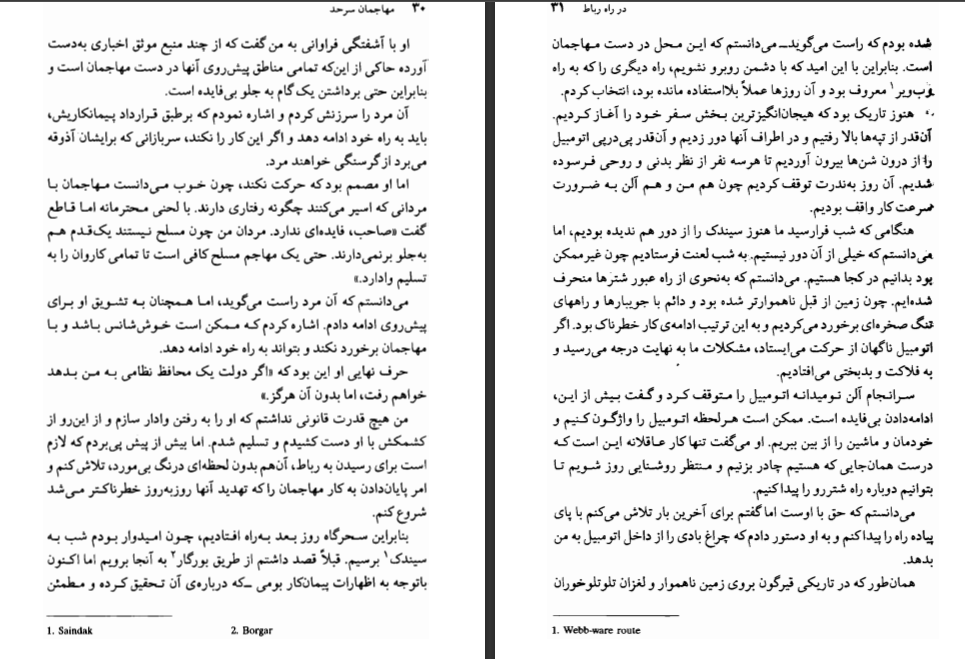 ۳۰ مهاجمان سرحد
او با آشفتگی فراوانی به من گفت که از چند منبع موثق اخباری به‌دست
آورده حاکی از این‌که تمامی مناطق پیش‌روی آنها در دست مهاجمان است و
بنابراین حتی برداشتن یک گام به جلو بی‌فایده است.
آن مرد را سرزنش کردم و اشاره نمودم که برطبق قرارداد پیمانکاریش،
باید به راه خود ادامه دهد و اگر این کار را نکند، سربازانی که برایشان آذوقه
می‌برد از گرسنگی خواهند مرد.
اما او مصمم بود که حرکت نکند، چون خوب می‌دانست مهاجمان با
مردانی که اسیر می‌کنند چگونه رفتاری دارند. با لحنی محترمانه اما قاطع
گفت «صاحب، فایده‌ای ندارد. مردان من چون مسلح نیستند یک‌قدم هم
به‌جلو برنمی‌دارند. حتی یک مهاجم مسلح کافی است تا تمامی کاروان را به
تسلیم وادارد.»
می‌دانستم که آن مرد راست می‌گوید، اما همچنان به تشویق او برای
پیش‌روی ادامه دادم. اشاره کردم که ممکن است خوش‌شانس باشد و با
مهاجمان برخورد نکند و بتواند به راه خود ادامه دهد.
حرف نهایی او این بود که «اگر دولت یک محافظ نظامی به من بدهد
خواهم رفت، اما بدون آن هرگز.»
من هیچ قدرت قانونی نداشتم که او را به رفتن وادار سازم و از این‌رو از
کشمکش با او دست کشیدم و تسلیم شدم. اما بیش از پیش پی‌بردم که لازم
است برای رسیدن به رباط، آن‌هم بدون لحظه‌ای درنگ بی‌مورد، تلاش کنم و
امر پایان‌دادن به کار مهاجمان را که تهدید آنها روزبه‌روز خطرناکتر می‌شد
شروع کنم.
بنابراین سحرگاه روز بعد به‌راه افتادیم، چون امیدوار بودم شب به
سیندک۱ برسیم. قبلاً قصد داشتم از طریق بورگار۲ به آنجا برویم اما اکنون
باتوجه به اظهارات پیمان‌کار بومی ــ‌که درباره‌ی آن تحقیق کرده و مطمئن
1. Saindak 2. Borgar
در راه رباط ۳۱
شده بودم که راست می‌گوید‌ــ می‌دانستم که این محل در دست مهاجمان
است. بنابراین با این امید که با دشمن روبرو نشویم، راه دیگری را که به راه
وب‌ویر۱ معروف بود و آن روزها عملاً بلااستفاده مانده بود، انتخاب کردم.
هنوز تاریک بود که هیجان‌انگیزترین بخش سفر خود را آغاز کردیم.
آن‌قدر از تپه‌ها بالا رفتیم و در اطراف آنها دور زدیم و آن‌قدر پی‌درپی اتومبیل
را از درون شن‌ها بیرون آوردیم تا هرسه نفر از نظر بدنی و روحی فرسوده
شدیم. آن روز به‌ندرت توقف کردیم چون هم من و هم آلن به ضرورت
سرعت کار واقف بودیم.
هنگامی که شب فرارسید ما هنوز سیندک را از دور هم ندیده بودیم، اما
می‌دانستم که خیلی از آن دور نیستیم. به شب لعنت فرستادیم چون غیرممکن
بود بدانیم در کجا هستیم. می‌دانستم که به‌نحوی از راه عبور شترها منحرف
شده‌ایم. چون زمین از قبل ناهموارتر شده بود و دائم با جویبارها و راههای
تنگ صخره‌ای برخورد می‌کردیم و به این ترتیب ادامه‌ی کار خطرناک بود. اگر
اتومبیل ناگهان از حرکت می‌ایستاد، مشکلات ما به نهایت درجه می‌رسید و
به فلاکت و بدبختی می‌افتادیم.
سرانجام آلن نومیدانه اتومبیل را متوقف کرد و گفت بیش از این،
ادامه‌دادن بی‌فایده است. ممکن است هرلحظه اتومبیل را واژگون کنیم و
خودمان و ماشین را از بین ببریم. او می‌گفت تنها کار عاقلانه این است که
درست همان‌جایی که هستیم چادر بزنیم و منتظر روشنایی روز شویم تا
بتوانیم دوباره راه شتررو را پیدا کنیم.
می‌دانستم که حق با اوست اما گفتم برای آخرین بار تلاش می‌کنم با پای
پیاده راه را پیدا کنم و به او دستور دادم که چراغ بادی را از داخل اتومبیل به من
بدهد.
همان‌طور که در تاریکی قیرگون بروی زمین ناهموار و لغزان تلوتلوخوران
1. Webb-ware route